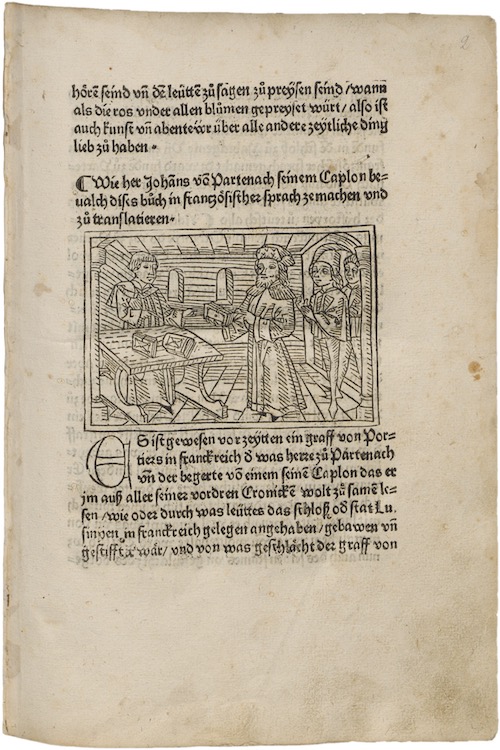 2
hörē seind vñ dē leütten zůsagen zů preysen seind / wann
als die ros vnder allen blůmen gepreyset würt / also ist
auch kunst vñ abenteẅr über alle andere zeytliche ding
lieb zů haben.
Wie her Johāns vō Partenach seinem Caplon be-
ualch dises bůch in franczösischer sprach ze machen vnd
zů translatieren.
ES ist gewesen vor zeytten ein graff von Por-
tiers in franckreich d was herre zů Partenach
vñ der begerte vō einem seinē Caplon das er
jm auß aller seiner vordren Cronickē wolt zů samē le-
sen / wie oder durch was leüttes das schloß od stat Lu-
sinien in franckreich gelegen angehaben / gebawen vñ
gestifft wär / vnd von was geschlächt der graff von